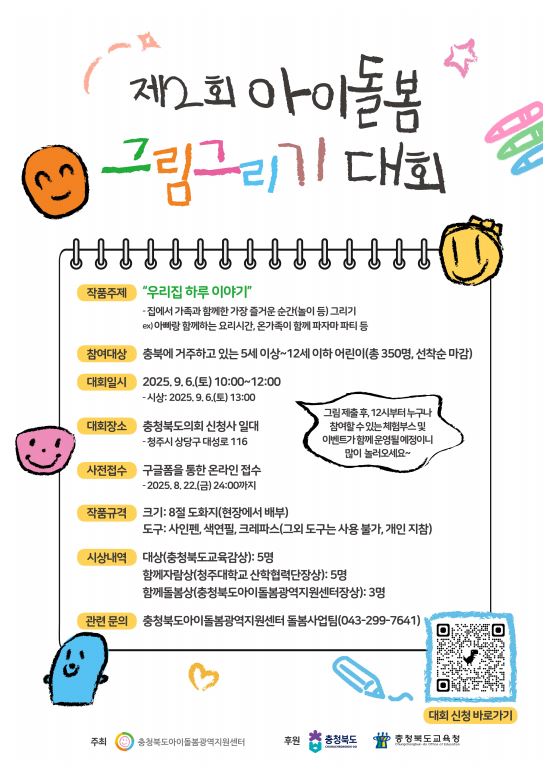 제2회 아이돌봄
그림그리기 대회
작품주제 "우리집 하루 이야기"
- 집에서 가족과 함께한 가장 즐거운 순간(놀이 등) 그리기
ex) 아빠랑 함께하는 요리시간, 온가족이 함께 파자마 파티 등
참여대상 충북에 거주하고 있는 5세 이상~12세 이하 어린이(총 350명, 선착순 마감)
대회일시 2025. 9. 6.(토) 10:00~12:00
- 시상: 2025. 9. 6.(토) 13:00
그림 제출 후, 12시부터 누구나
참여할 수 있는 체험부스 및
이벤트가 함께 운영될 예정이니
많이 놀러오세요~
대회장소 충청북도의회 신청사 일대
- 청주시 상당구 대성로 116
사전접수 구글폼을 통한 온라인 접수
- 2025. 8. 22.(금) 24:00까지
작품규격 크기: 8절 도화지(현장에서 배부)
도구: 사인펜, 색연필, 크레파스(그외 도구는 사용 불가, 개인 지참)
시상내역 대상(충청북도교육감상): 5명
함께자람상(청주대학교 산학협력단장상): 5명
함께돌봄상(충청북도아이돌봄광역지원센터장상): 3명
관련 문의 충청북도아이돌봄광역지원센터 돌봄사업팀(043-299-7641)
대회 신청 바로가기
주최 충청북도아이돌봄광역지원센터 후원 충청북도 충청북도교육청
CHUNGCHEONGBUK-DO Chungcheongbuk-do Office of Education